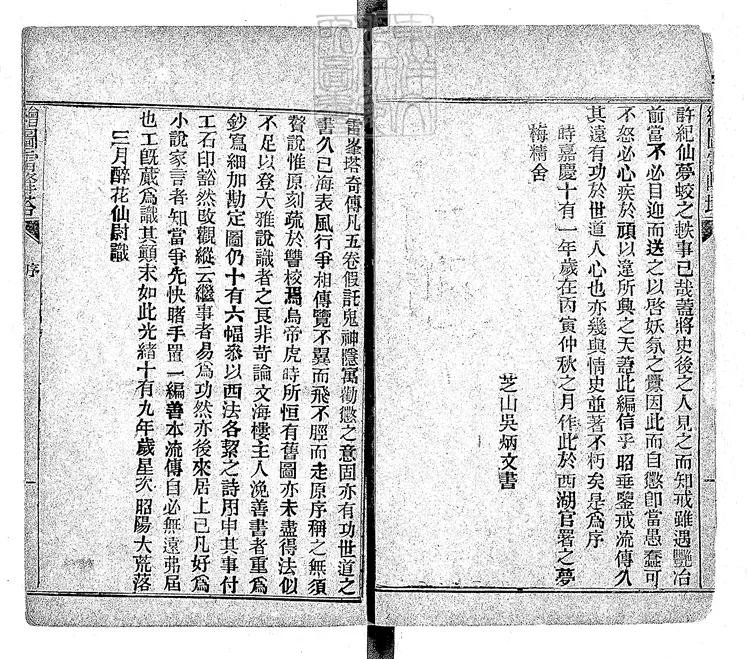 許紀仙夢蛟之軼事已哉蓋將史後之人見之而知戒雖遇艷冶
前當不必目迎而送之以啓妖氛之釁因此而自懲卽當愚蠢可
不怒必心疾於頑以違所興之天蓋此編信乎昭垂鑒戒流傳久
其遠有功於世道人心也亦幾與情史並著不朽矣是爲序
時嘉慶十有一年歲在丙寅仲秋之月作此於西湖官署之夢
梅精舍
芝山吳炳文書
雷峯塔奇傳凡五卷假託鬼神隱寓勸懲之意固亦有功世道之
書久已海表風行爭相傳覽不翼而飛不脛而走原序稱之無須
贅說惟原刻疏於讐校焉烏帝虎時所恒有舊圖亦未盡得法似
不足以登大雅說識者之艮非苛論文海樓主人浼善書者重爲
鈔寫細加勘定圖仍十有六幅叅以西法各繫之詩用申其事付
工石印豁然改觀縱云繼事者易爲功然亦後來居上已凡好爲
小說家言者知當爭先快睹手置一編善本流傳自必無遠弗屆
也工旣蕆爲識其顚末如此光緒十有九年歲星次昭陽大荒落
三月醉花仙尉識
繪圖雷峯塔
序
一